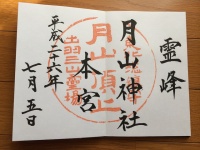 霊峰
月山神社
本宮
平成二十六年
七月五日
月山頂上